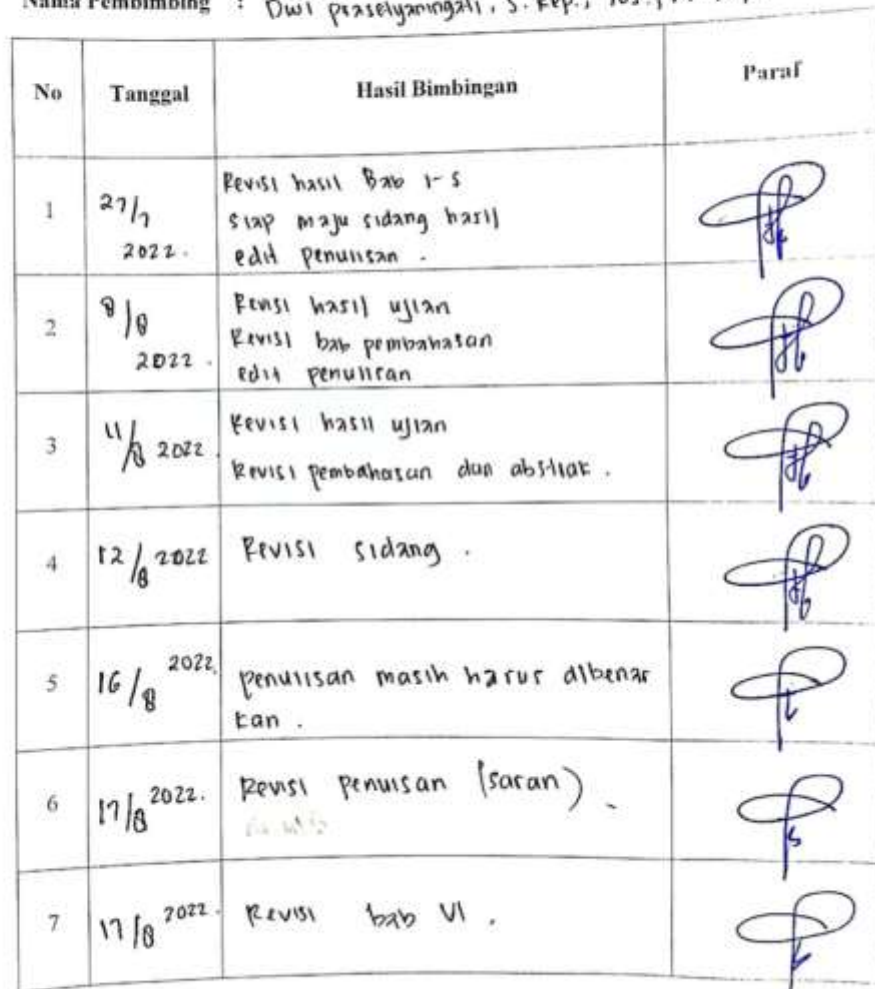 Nama Pembimbing : Dwi prasetyaningati, S. Kep.,
No Tanggal Hasil Bimbingan Paraf
1 27/7 2022. Revisi hasil Bab 1-5
siap maju sidang hasil
edit penulisan .
2 8/8 2022. Revisi hasil ujian
Revisi bab pembahasan
edit penulisan
3 11/8 2022. Revisi hasil ujian
Revisi pembahasan dan abstrak .
4 12/8 2022 Revisi sidang .
5 16/8 2022. penulisan masih harus dibenar
kan .
6 17/8 2022. Revisi penuisan (saran) .
7 17/8 2022. Revisi bab VI .